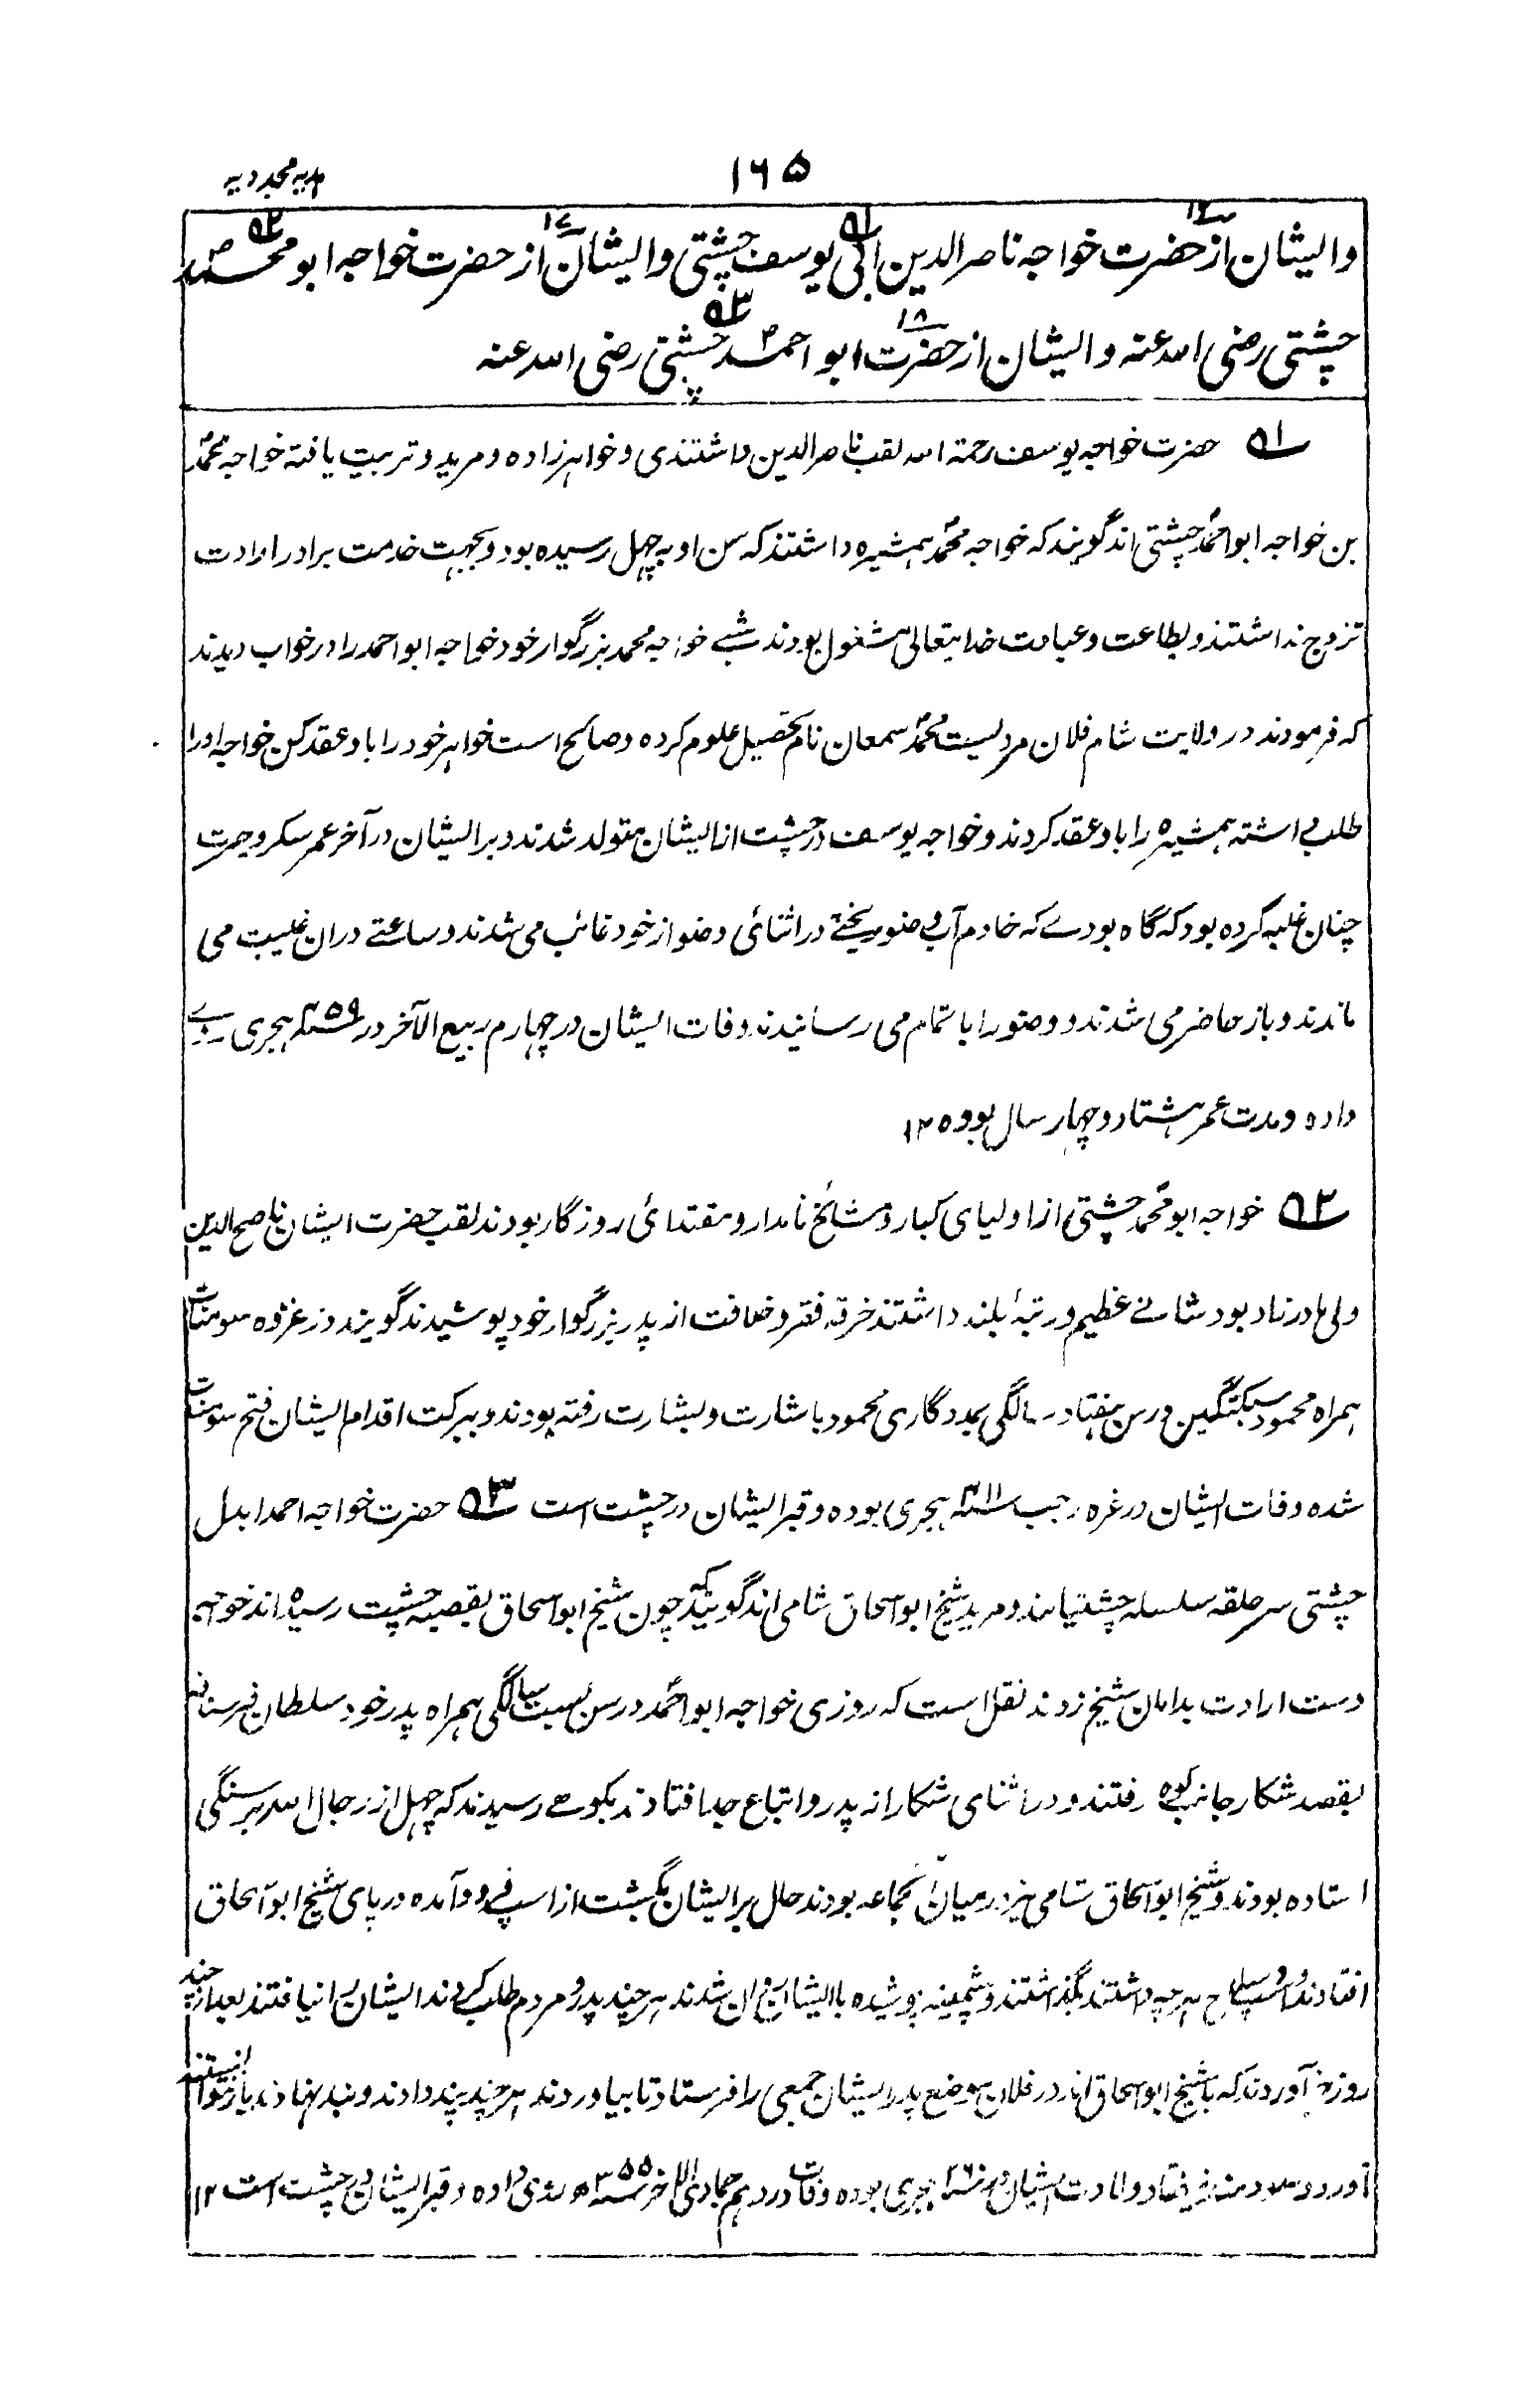 ۱۶۵
ہدیہ مجددیہ
وایشان از حضرت خواجہ ناصر الدین ابی یوسف چشتی وایشان از حضرت خواجہ ابو محمد
چشتی رضی اللہ عنہ وایشان از حضرت ابو احمد چشتی رضی اللہ عنہ
۵۱ حضرت خواجہ یوسف رحمۃ اللہ لقب ناصر الدین داشتندی و خواہر زادہ و مرید و تربیت یافتہ خواجہ محمد
بن خواجہ ابو احمد چشتی اند گویند کہ خواجہ محمد ہمشیرہ داشتند کہ سن او بہ چہل رسیدہ بود و بجہت خدمت برادر ارادت
تزوج نداشتند و بطاعت و عبادت خدایتعالی مشغول بودند شبے خواجہ محمد بزرگوار خود خواجہ ابو احمد را در خواب دیدند
کہ فرمودند در ولایت شام فلان مردیست محمد سمعان نام تحصیل علوم کردہ و صالح است خواہر خود را باو عقد کن خواجہ او را
طلب داشتہ ہمشیرہ را باو عقد کردند و خواجہ یوسف در چشت از ایشان متولد شدند و بر ایشان در آخر عمر سکر و حیرت
چنان غلبہ کردہ بود کہ گاہ بودے کہ خادم آب وضو ریختے در اثنائی وضو از خود غائب می شدند و ساعتے در ان غیبت می
ماندند و باز حاضر می شدند و وضو را باتمام می رسانیدند وفات ایشان در چہارم ربیع الآخر در ۴۵۹ ہجری روے
دادہ و مدت عمر ہشتاد و چہار سال بودہ ۱۲
۵۲ خواجہ ابو محمد چشتی از اولیای کبار و مشائخ نامدار و مقتدائی روزگار بودند لقب حضرت ایشان ناصح الدین
ولی مادرزاد بود شانے عظیم و رتبۂ بلند داشتند خرقہ فقر و خلافت از پدر بزرگوار خود پوشیدند گویند در غزوہ سومنات
ہمراہ محمود سبکتگین در سن ہفتاد سالگی بمددگاری محمود باشارت و بشارت رفتہ بودند و ببرکت اقدام ایشان فتح سومنات
شدہ وفات ایشان در غرہ رجب ۴۱۱ ہجری بودہ و قبر ایشان در چشت است ۵۳ حضرت خواجہ احمد ابدل
چشتی سر حلقہ سلسلہ چشتیانند و مرید شیخ ابو اسحاق شامی اند گویند کہ چون شیخ ابو اسحاق بقصبہ چشت رسیدہ اند خواجہ
دست ارادت بدامان شیخ زدند نقل است کہ روزی خواجہ ابو احمد در سن بیست سالگی ہمراہ پدر خود سلطان فرسنافہ
بقصد شکار جانب کوہ رفتند و در اثنای شکار از پدر و اتباع جدا افتادند بکوہے رسیدند کہ چہل از رجال اللہ بر سنگی
استادہ بودند و شیخ ابو اسحاق شامی نیز درمیان جماعہ بودند حال بر ایشان بگشت از اسپ فرود آمدہ در پای شیخ ابو اسحاق
افتادند و اسپ و سلاح ہرچہ داشتند بگذاشتند و پشمینہ پوشیدہ باایشان روان شدند ہرچند پدر و مردم طلب کردند ایشان را نیافتند بعد از چند
روز خبر آوردند کہ با شیخ ابو اسحاق اند در فلان موضع پدر ایشان جمعی را فرستاد تا بیاوردند ہرچند پند دادند و بند نہادند باز نتوانستند
آورد و سودمند نیفتاد ولادت ایشان در ۲۶۰ ہجری بودہ وفات در دہم جمادی الآخر ۳۵۵ھ روی دادہ و قبر ایشان در چشت است ۱۲